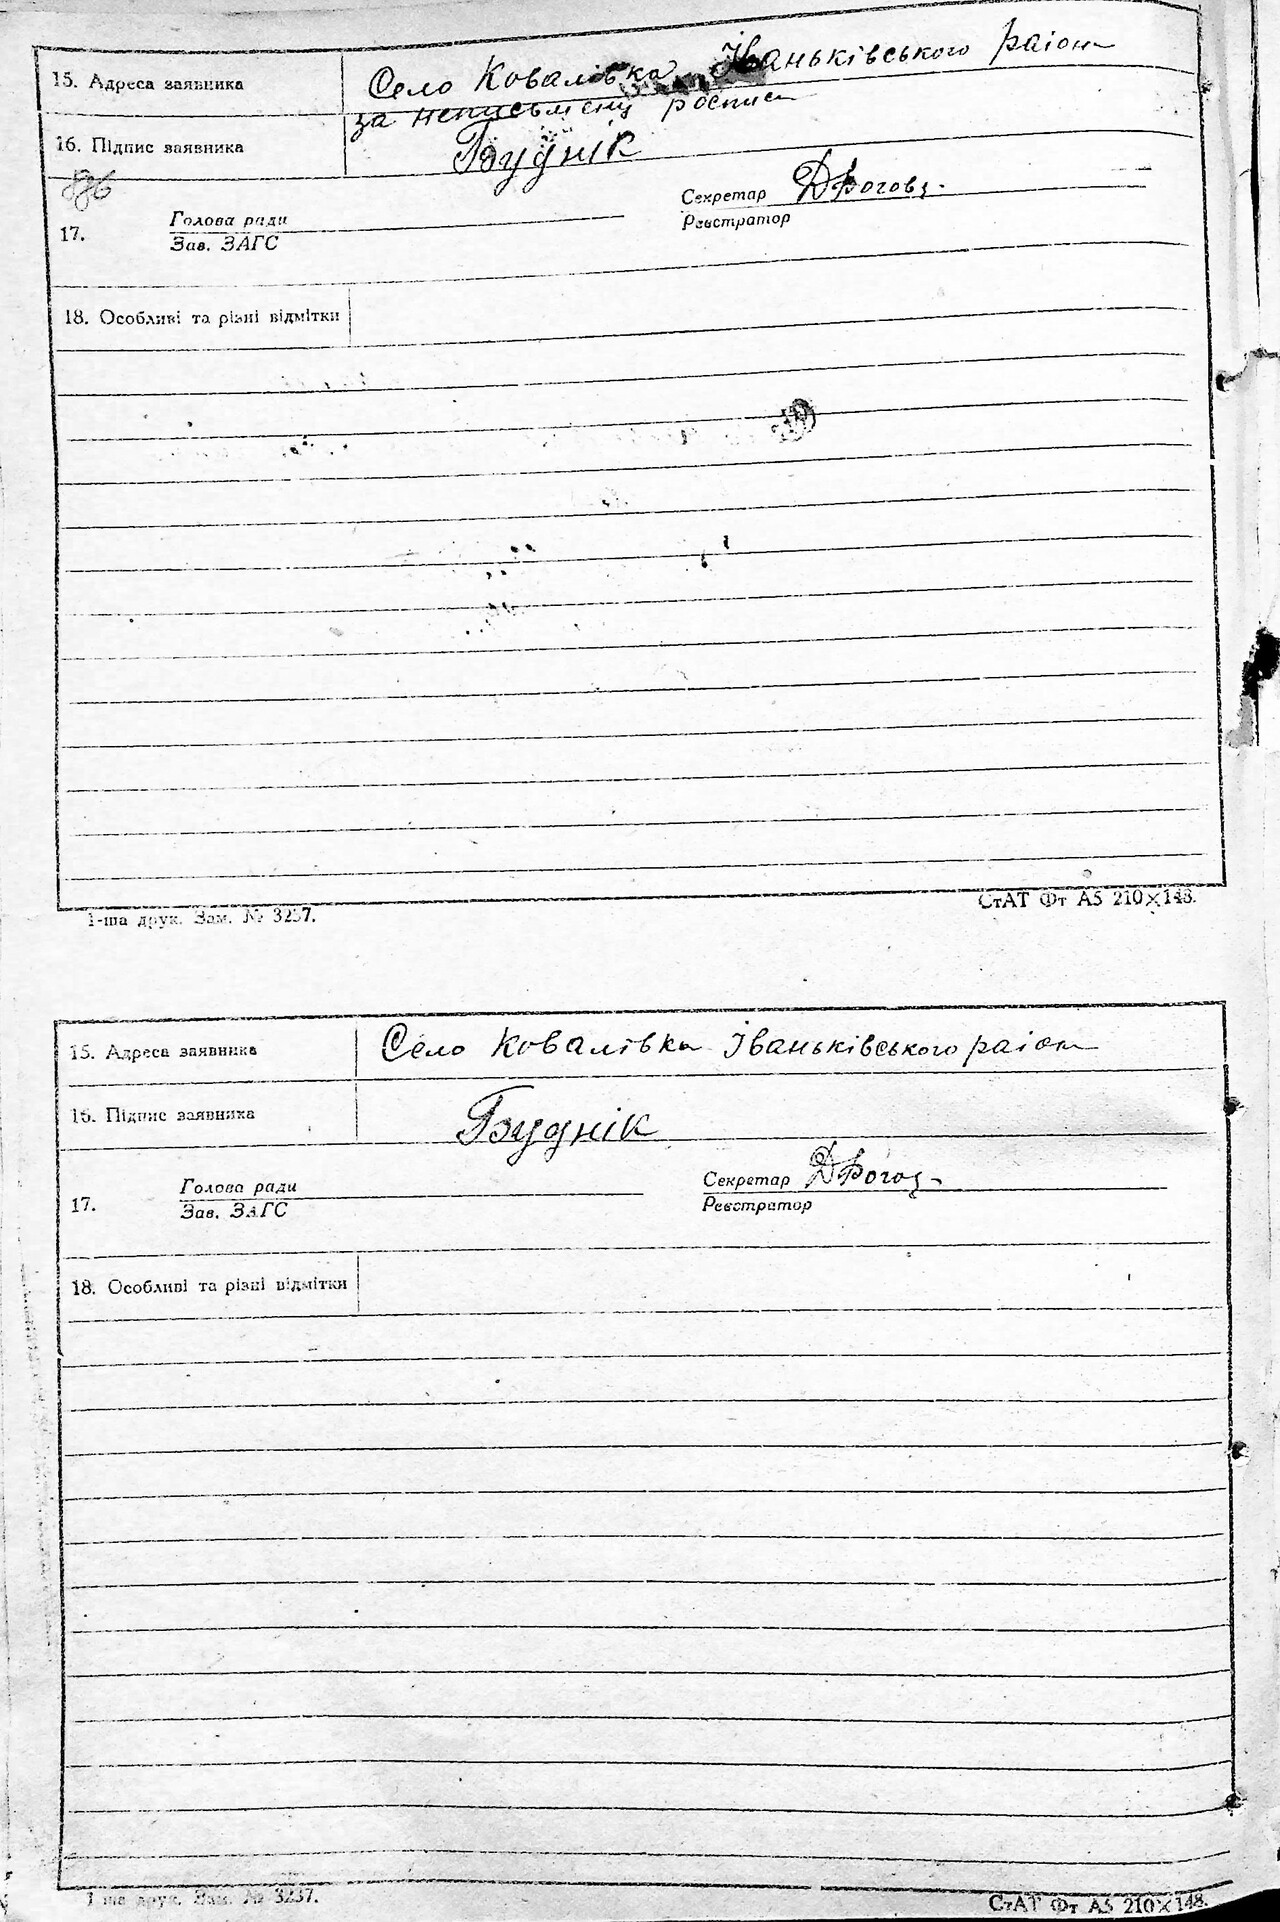 15. Адреса заявника Село Ковалівка Іваньківського район
за неписьмену роспис
16. Підпис заявника Буднік
886
Секретар
Голова ради Реєстратор
17. Зав. ЗАГС
18. Особливі та різні відмітки
1-ша друк. Зам. № 3237. СтАТ Фт А5 210×148.
15. Адреса заявника Село Ковалівка Іваньківського район
16. Підпис заявника Буднік
Голова ради Секретар
17. Зав. ЗАГС Реєстратор
18. Особливі та різні відмітки
1-ша друк. Зам. № 3237. СтАТ Фт А5 210×148.